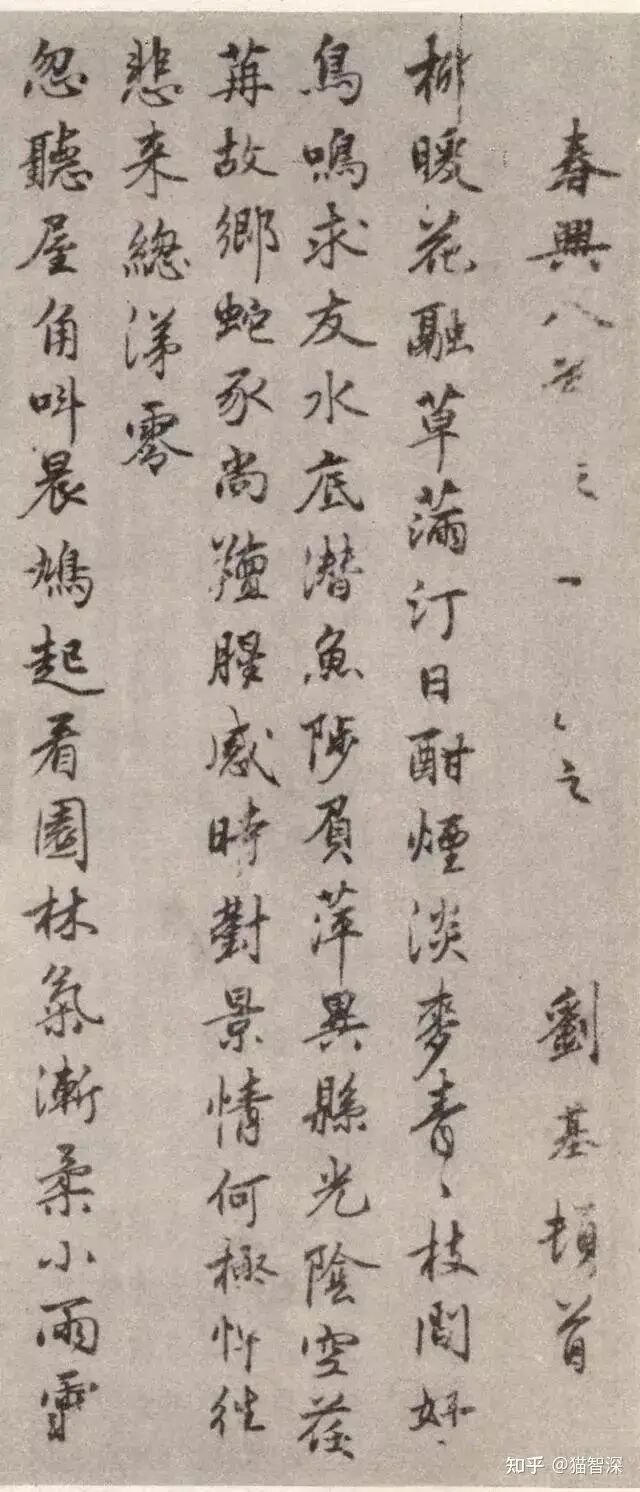 春興八首之一 劉基頓首
柳暖花融草滿汀日酣煙淡麥青〻枝間好
鳥鳴求友水底潛魚陟負萍異縣光陰空荏
苒故鄉蛇豕尚羶腥感時對景情何極忻往
悲来總涕零
忽聽屋角叫晨鳩起看園林氣漸柔小雨
知乎 @猫智深